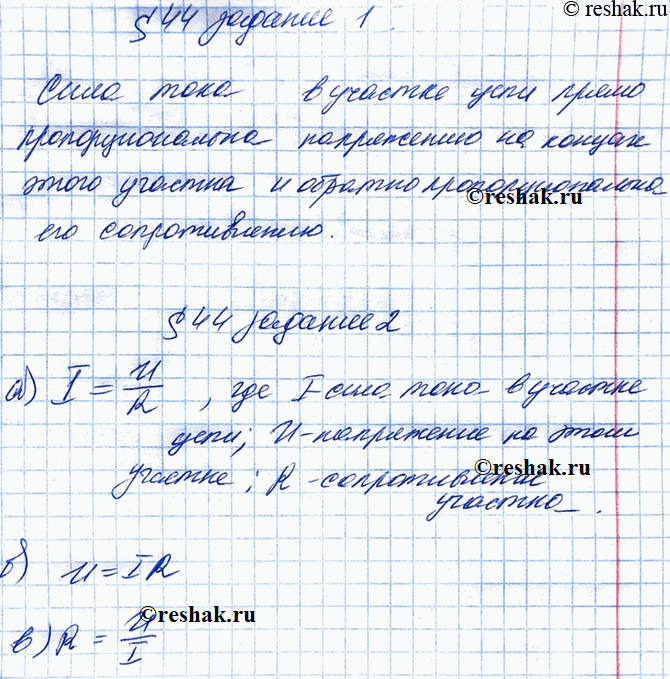 ©reshak.ru
§ 44 задание 1.
Сила тока в участке цепи прямо
пропорциональна напряжению на концах
этого участка и обратно пропорциональна
©reshak.ru
его сопротивлению.
§ 44 задание 2
а) I = U/R , где I - сила тока в участке
цепи; U - напряжение на этом
участке; R - сопротивление
©reshak.ru
участка.
б) U = IR
©reshak.ru
в) R = U/I